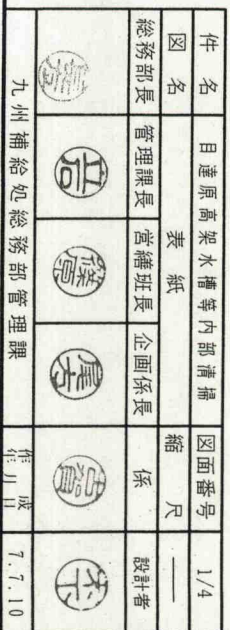 件名 目達原高架水槽等内部清掃 図面番号 1/4
図名 表紙 縮尺 ――
総務部長 管理課長 営繕班長 企画係長 係 設計者
岩 篠原 尾方 古賀
九州補給処総務部管理課 作成年月日 7.7.10